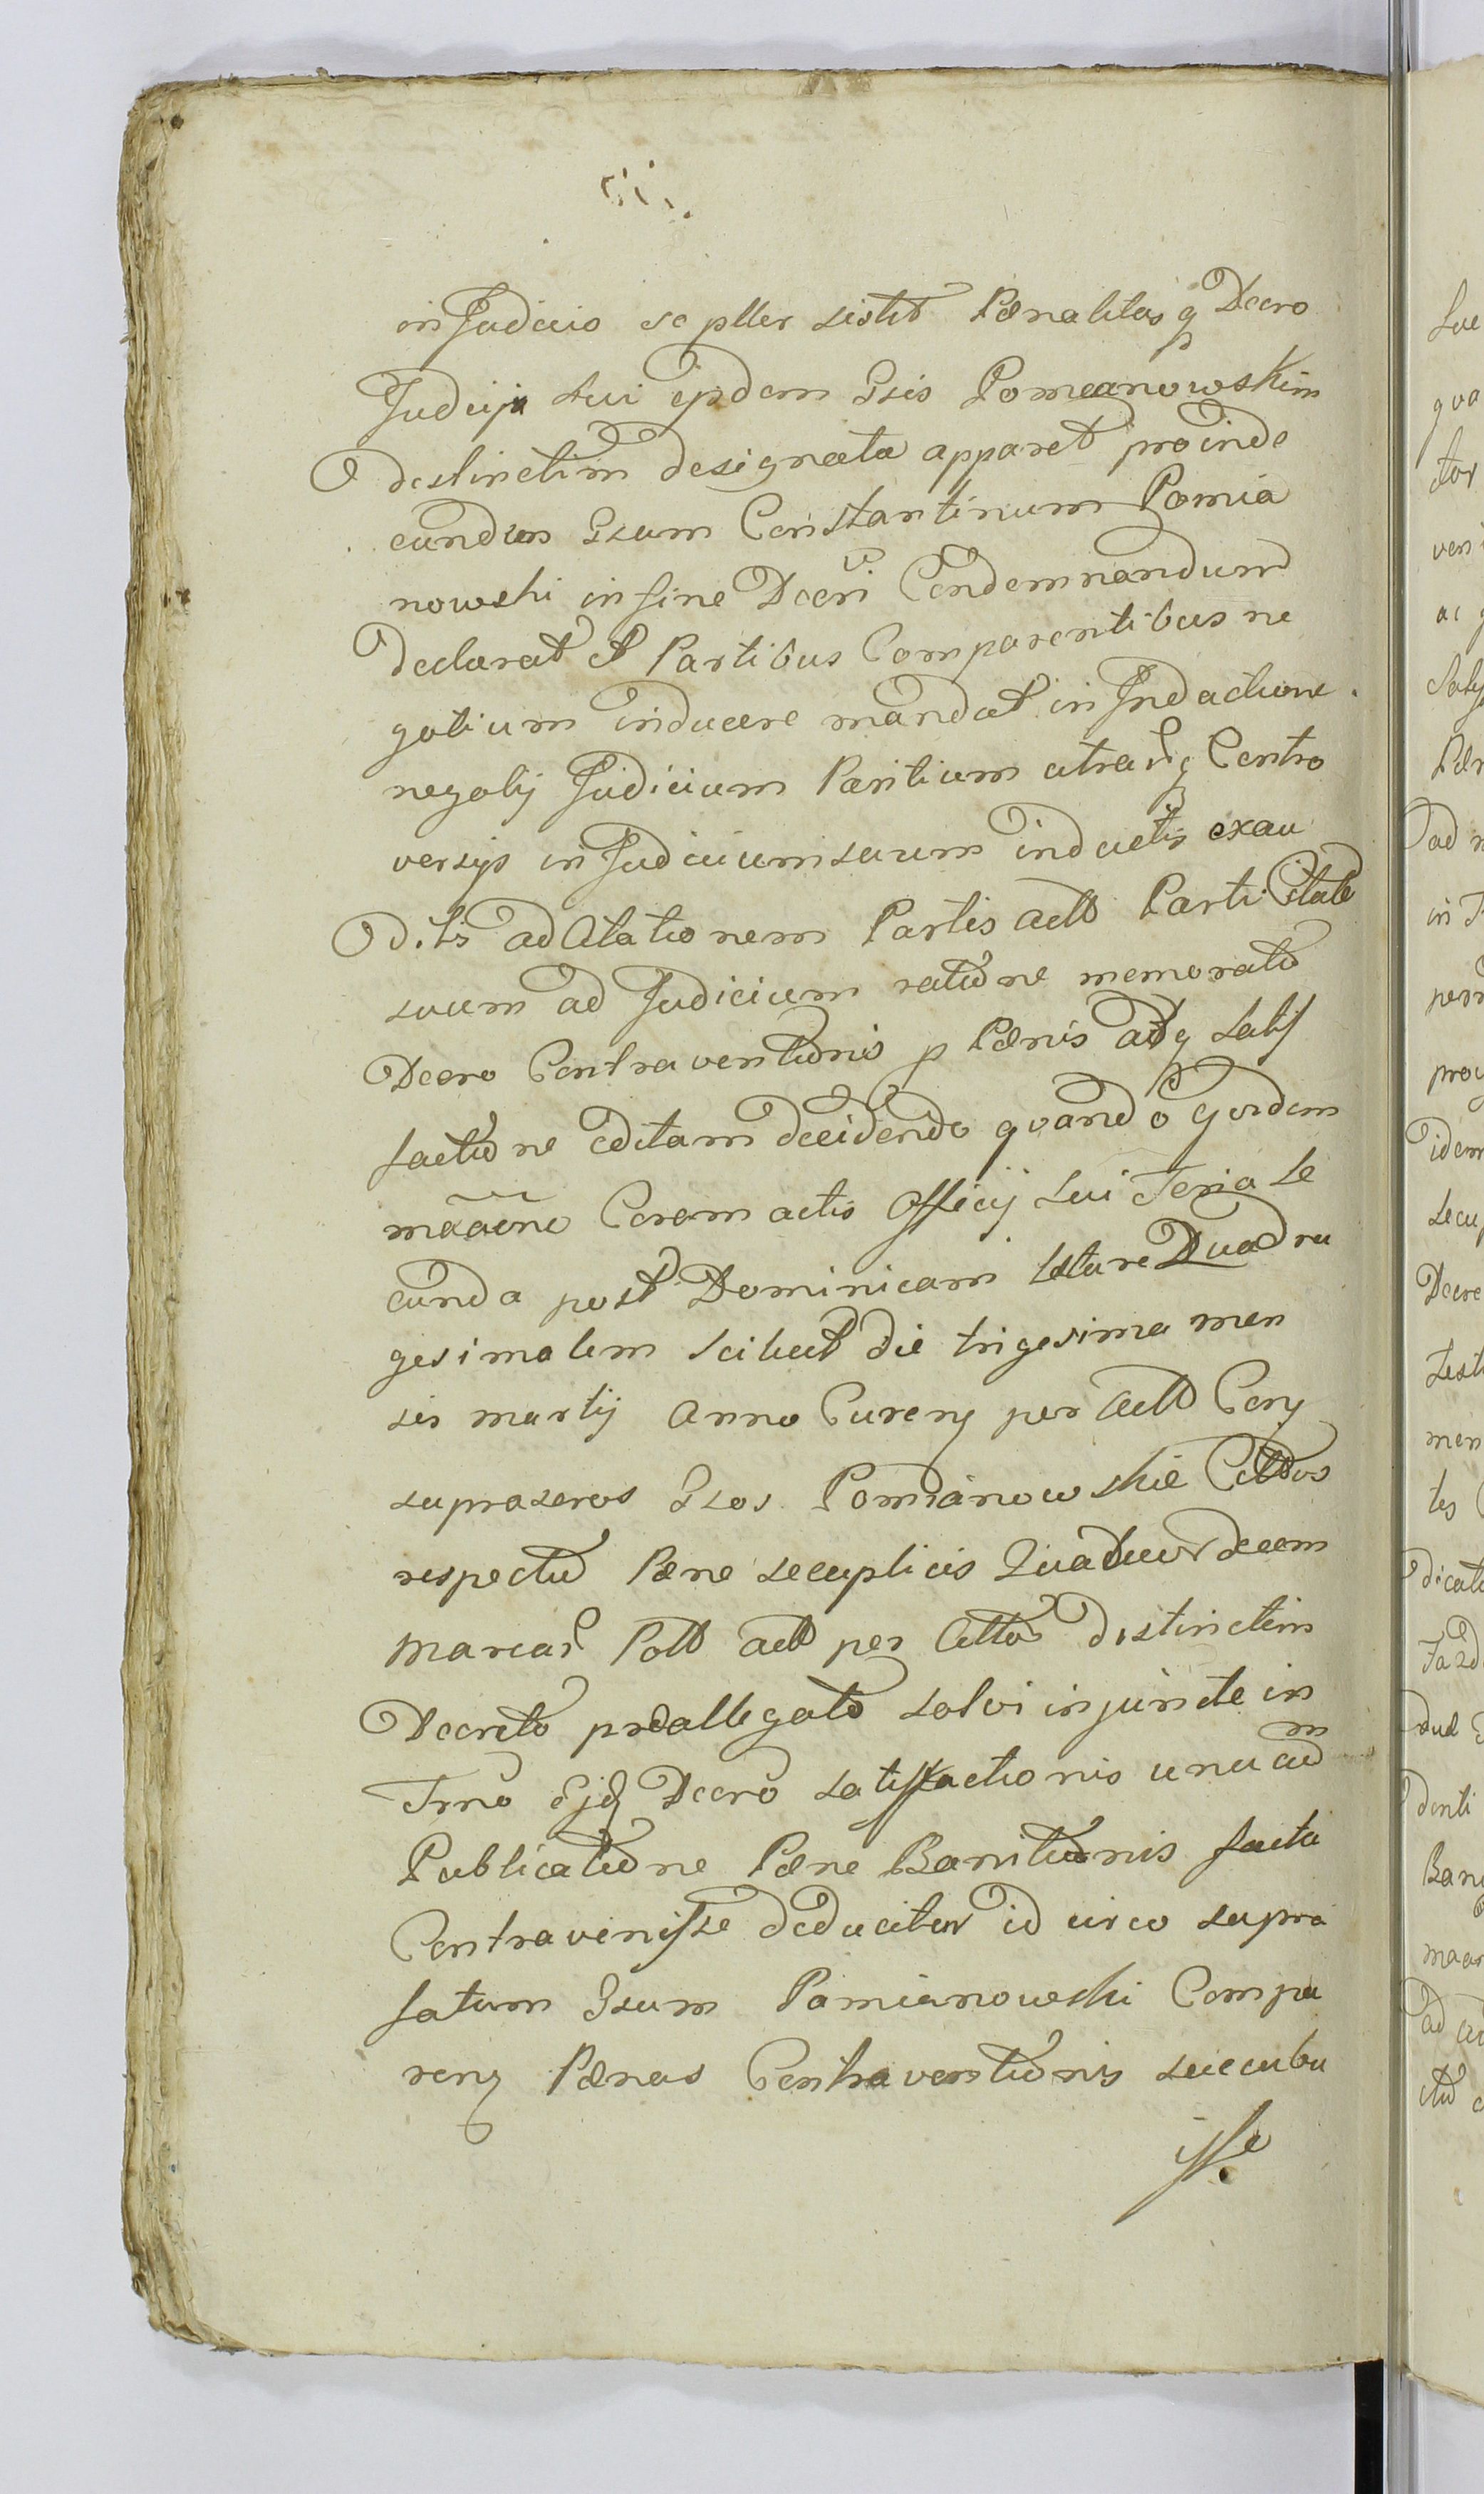 in Judicio se pller sistit Pænalitas q Decro
Judicij sui ejsdem Gsis Pomeanowskim
destinctim designata apparet proinde
eundem Gsum Constantinum Pomia
nowski in fine Decri Condemnandum
declarat et Partibus Comparentibus ne
gotium inducere mandat in Inductione
negotij Judicium Partium utrarq Contro
versijs in Judicium suum inductis exau
ditis ad Citationem Partis act Parti Citate
suum ad Judicium ratione memorato
Decro Contraventionis p Pænis adq satis
factione editam decidendo quando quidem
maaene Coram actis Officij sui Feria Se
cunda post Dominicam Letare Quadra
gesimalem scilicet die trigesima men
sis martij Anno Cureng per Act Cong
supraseros Gsos Pomianowskie Cittos
respectu Pæne secuplicis Quatuor decem
marcar Poll act per Cittos distinctim
Decreto preallegato solvi injuncte in
Trno Ejq Decro satisfactionis una cum
Publicatione Pæne Banitionis facta
Contravenisse deducitur id circo supra
fatum Gsum Pomianowski Compa
reng Pænas Contraventionis succubu
isse